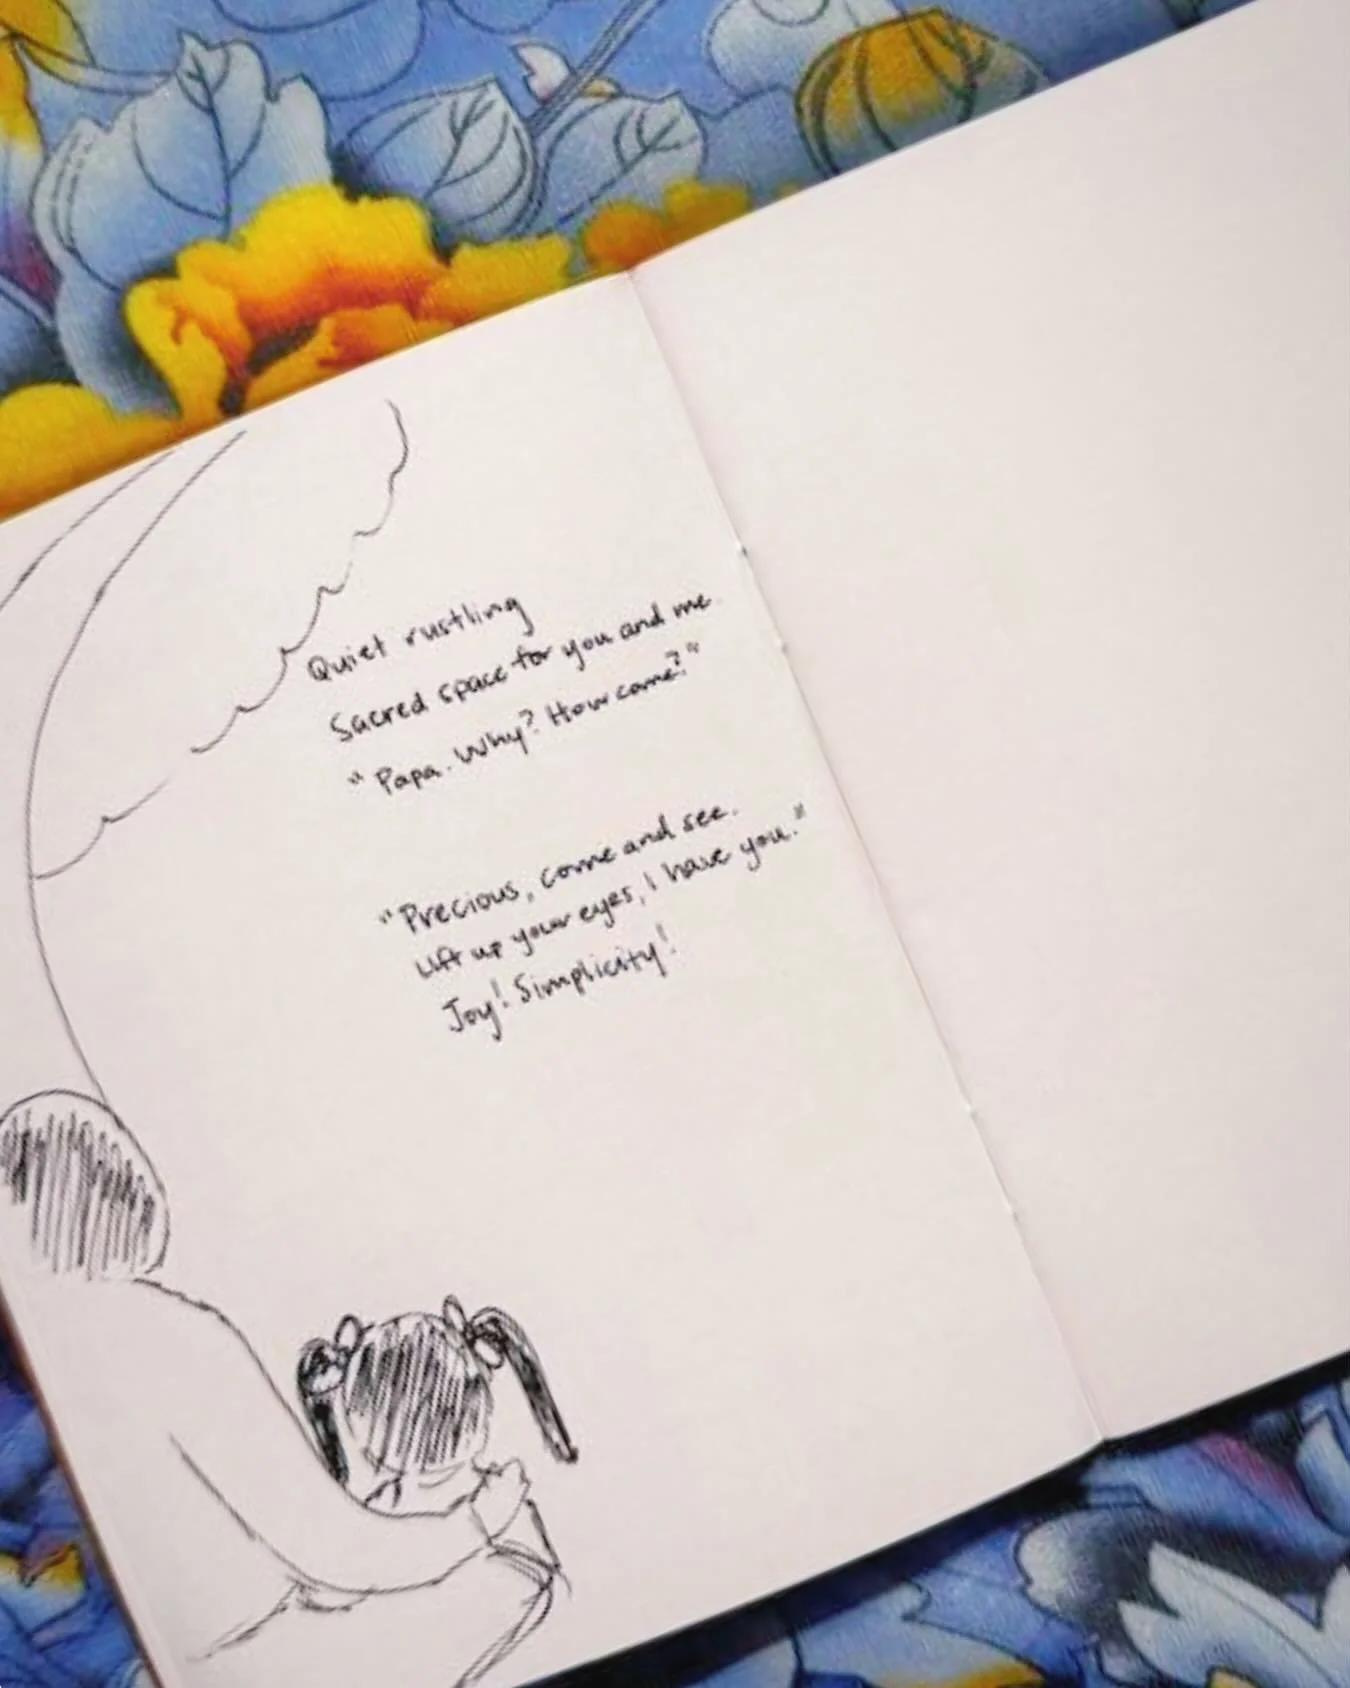 Quiet rustling
Sacred space for you and me.
"Papa. Why? How come?"
"Precious, come and see.
Lift up your eyes, I have you."
Joy! Simplicity!